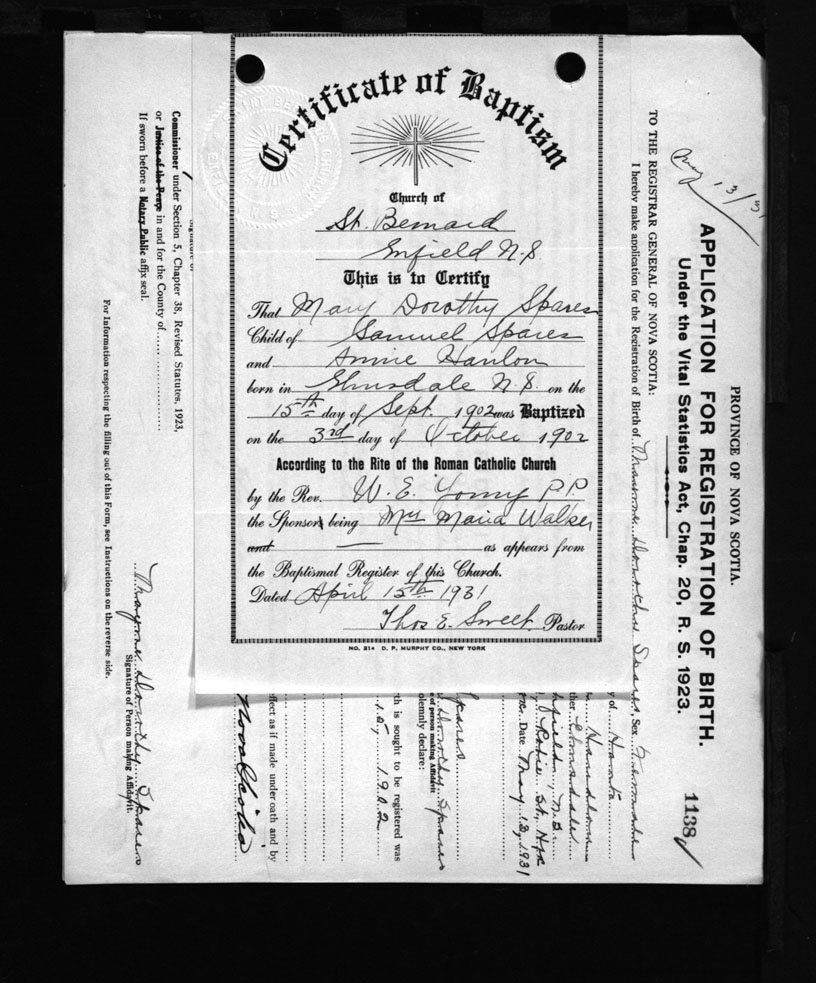 Certificate of Baptism
Church of
St. Bernard
Enfield N.S.
This is to Certify
That Mary Dorothy Spares
Child of Samuel Spares
and Annie Hanlon
born in Elmsdale N.S. on the
15th day of Sept. 1902 was Baptized
on the 3rd day of October 1902
According to the Rite of the Roman Catholic Church
by the Rev. W. E. Young P.P.
the Sponsor being Mrs Maria Walker
and — as appears from
the Baptismal Register of this Church.
Dated April 15th 1931
Thos E. Sweet Pastor
NO. 214 D. P. MURPHY CO., NEW YORK
May 13/31
PROVINCE OF NOVA SCOTIA.
APPLICATION FOR REGISTRATION OF BIRTH.
Under the Vital Statistics Act, Chap. 20, R. S. 1923.
1138
TO THE REGISTRAR GENERAL OF NOVA SCOTIA:
I hereby make application for the Registration of Birth of Dorothy Spares Sex Female
y of Hants
Elmsdale
nfield, N.S.
Robie St, Hfx
Date May 13, 1931
Spares
e of person making Affidavit.
Dorothy Spares
olemnly declare:
th is sought to be registered was
15, 1902
ffect as if made under oath and by
Nova Scotia
Signature of
Commissioner under Section 5, Chapter 38, Revised Statutes, 1923,
or Justice of the Peace in and for the County of
If sworn before a Notary Public affix seal.
Mayme Dorothy Spares
Signature of Person making Affidavit.
For Information respecting the filling out of this Form, see Instructions on the reverse side.